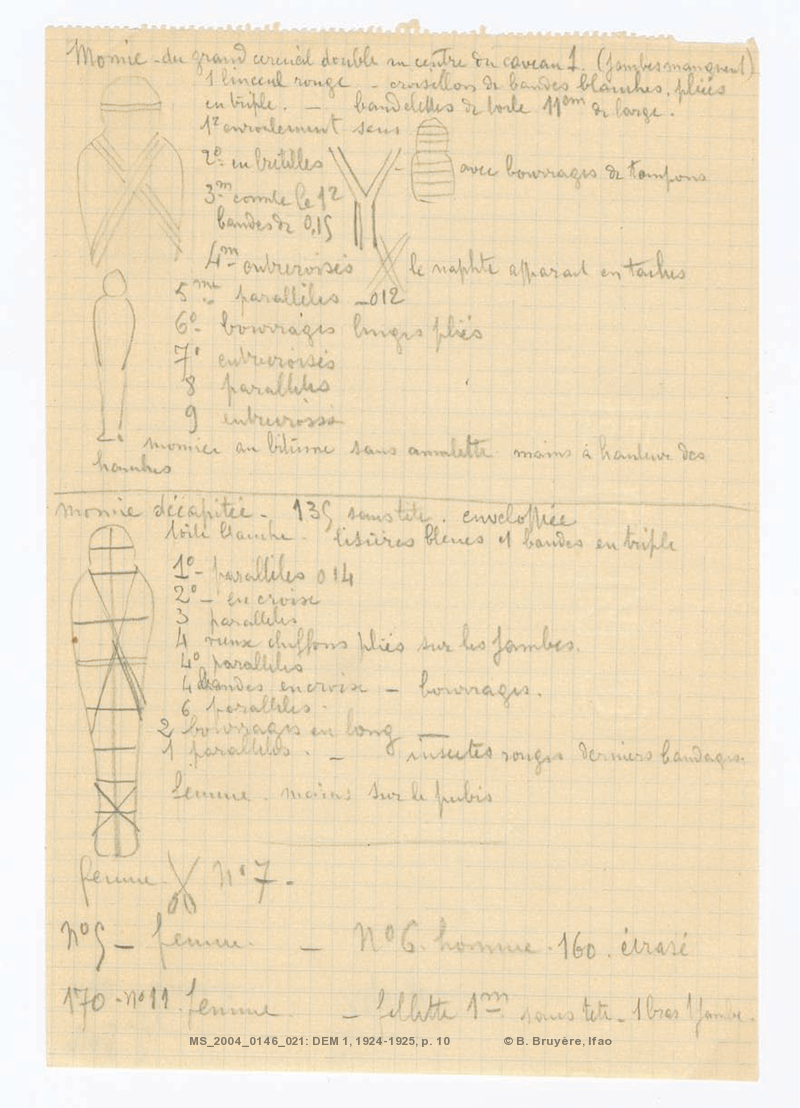 Momie - du grand cercueil double au centre du caveau 1. (jambes manquent)
1 linceul rouge - croisillon de bandes blanches, pliées
en triple. - bandelettes de toile 11cm de large.
1º enroulement sens
2º en bretelles - avec bourrages de tampons
3m comme le 1º
bandes de 0,15
4m entrecroisés le naphte apparait en taches
5me parallèles - 012
6º bourrages linges pliés
7º entrecroisés
8 parallèles
9 entrecroisés
momie au bitume sans amulette mains à hauteur des
hanches
momie décapitée - 135 sans tete. enveloppée
toile blanche - lisières bleues et bandes en triple
1º - parallèles 014
2º - en croisé
3 parallèles
4 vieux chiffons pliés sur les jambes.
4º parallèles
4 bandes en croisé - bourrages.
6 parallèles.
2 bourrages en long
1 parallèles. - insectes rouges derniers bandages.
femme - mains sur le pubis
femme Nº 7 -
Nº 5 - femme. - Nº 6. homme. 160. écrasé
170 - nº 11. femme. - fillette 1m sans tete - 1 bras 1 jambe.
MS_2004_0146_021: DEM 1, 1924-1925, p. 10 © B. Bruyère, Ifao